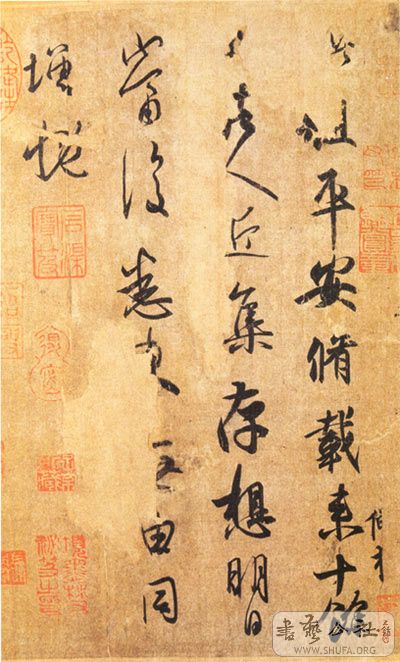 此粗平安脩載來十餘
日諸人近集存想明日
當復悉來無由同
增慨
書藝公社
WWW.SHUFA.ORG